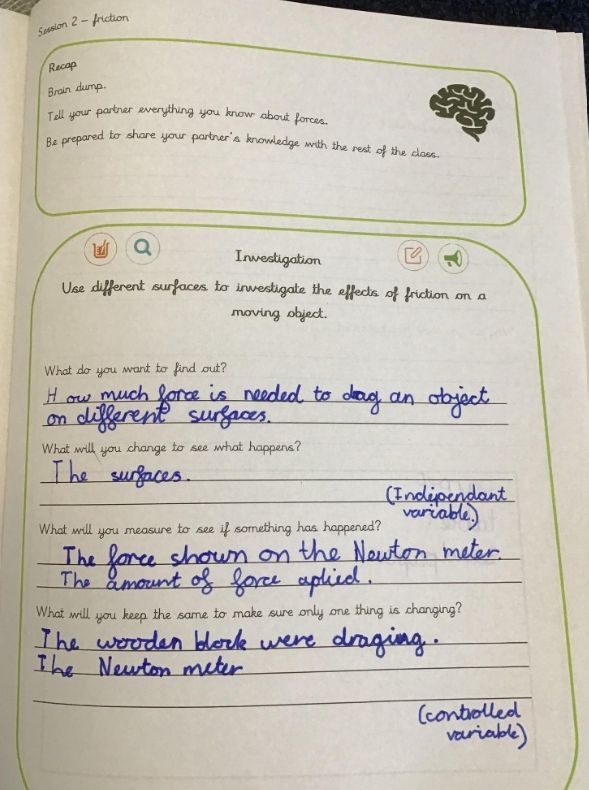 Session 2 – friction
Recap
Brain dump.
Tell your partner everything you know about forces.
Be prepared to share your partner's knowledge with the rest of the class.
Investigation
Use different surfaces to investigate the effects of friction on a
moving object.
What do you want to find out?
How much force is needed to drag an object
on different surfaces.
What will you change to see what happens?
The surfaces.
(Independant
variable.)
What will you measure to see if something has happened?
The force shown on the Newton meter.
The amount of force aplied.
What will you keep the same to make sure only one thing is changing?
The wooden block were draging.
The Newton meter
(controlled
variable)